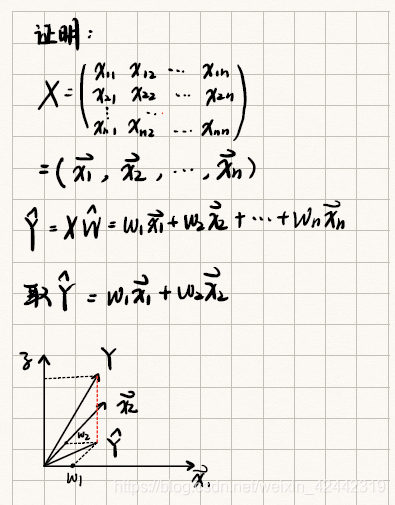 证明：
X = ( x₁₁ x₁₂ ⋯ x₁ₙ
x₂₁ x₂₂ ⋯ x₂ₙ
⋮ ⋱
xₙ₁ xₙ₂ ⋯ xₙₙ )
= ( x⃗₁ , x⃗₂ , ⋯ , x⃗ₙ )
Ŷ = XŴ = w₁x⃗₁ + w₂x⃗₂ + ⋯ + wₙx⃗ₙ
取 Ŷ = w₁x⃗₁ + w₂x⃗₂
Y
x⃗₂
w₂ Ŷ
w₁ x⃗₁
https://blog.csdn.net/weixin_42442319